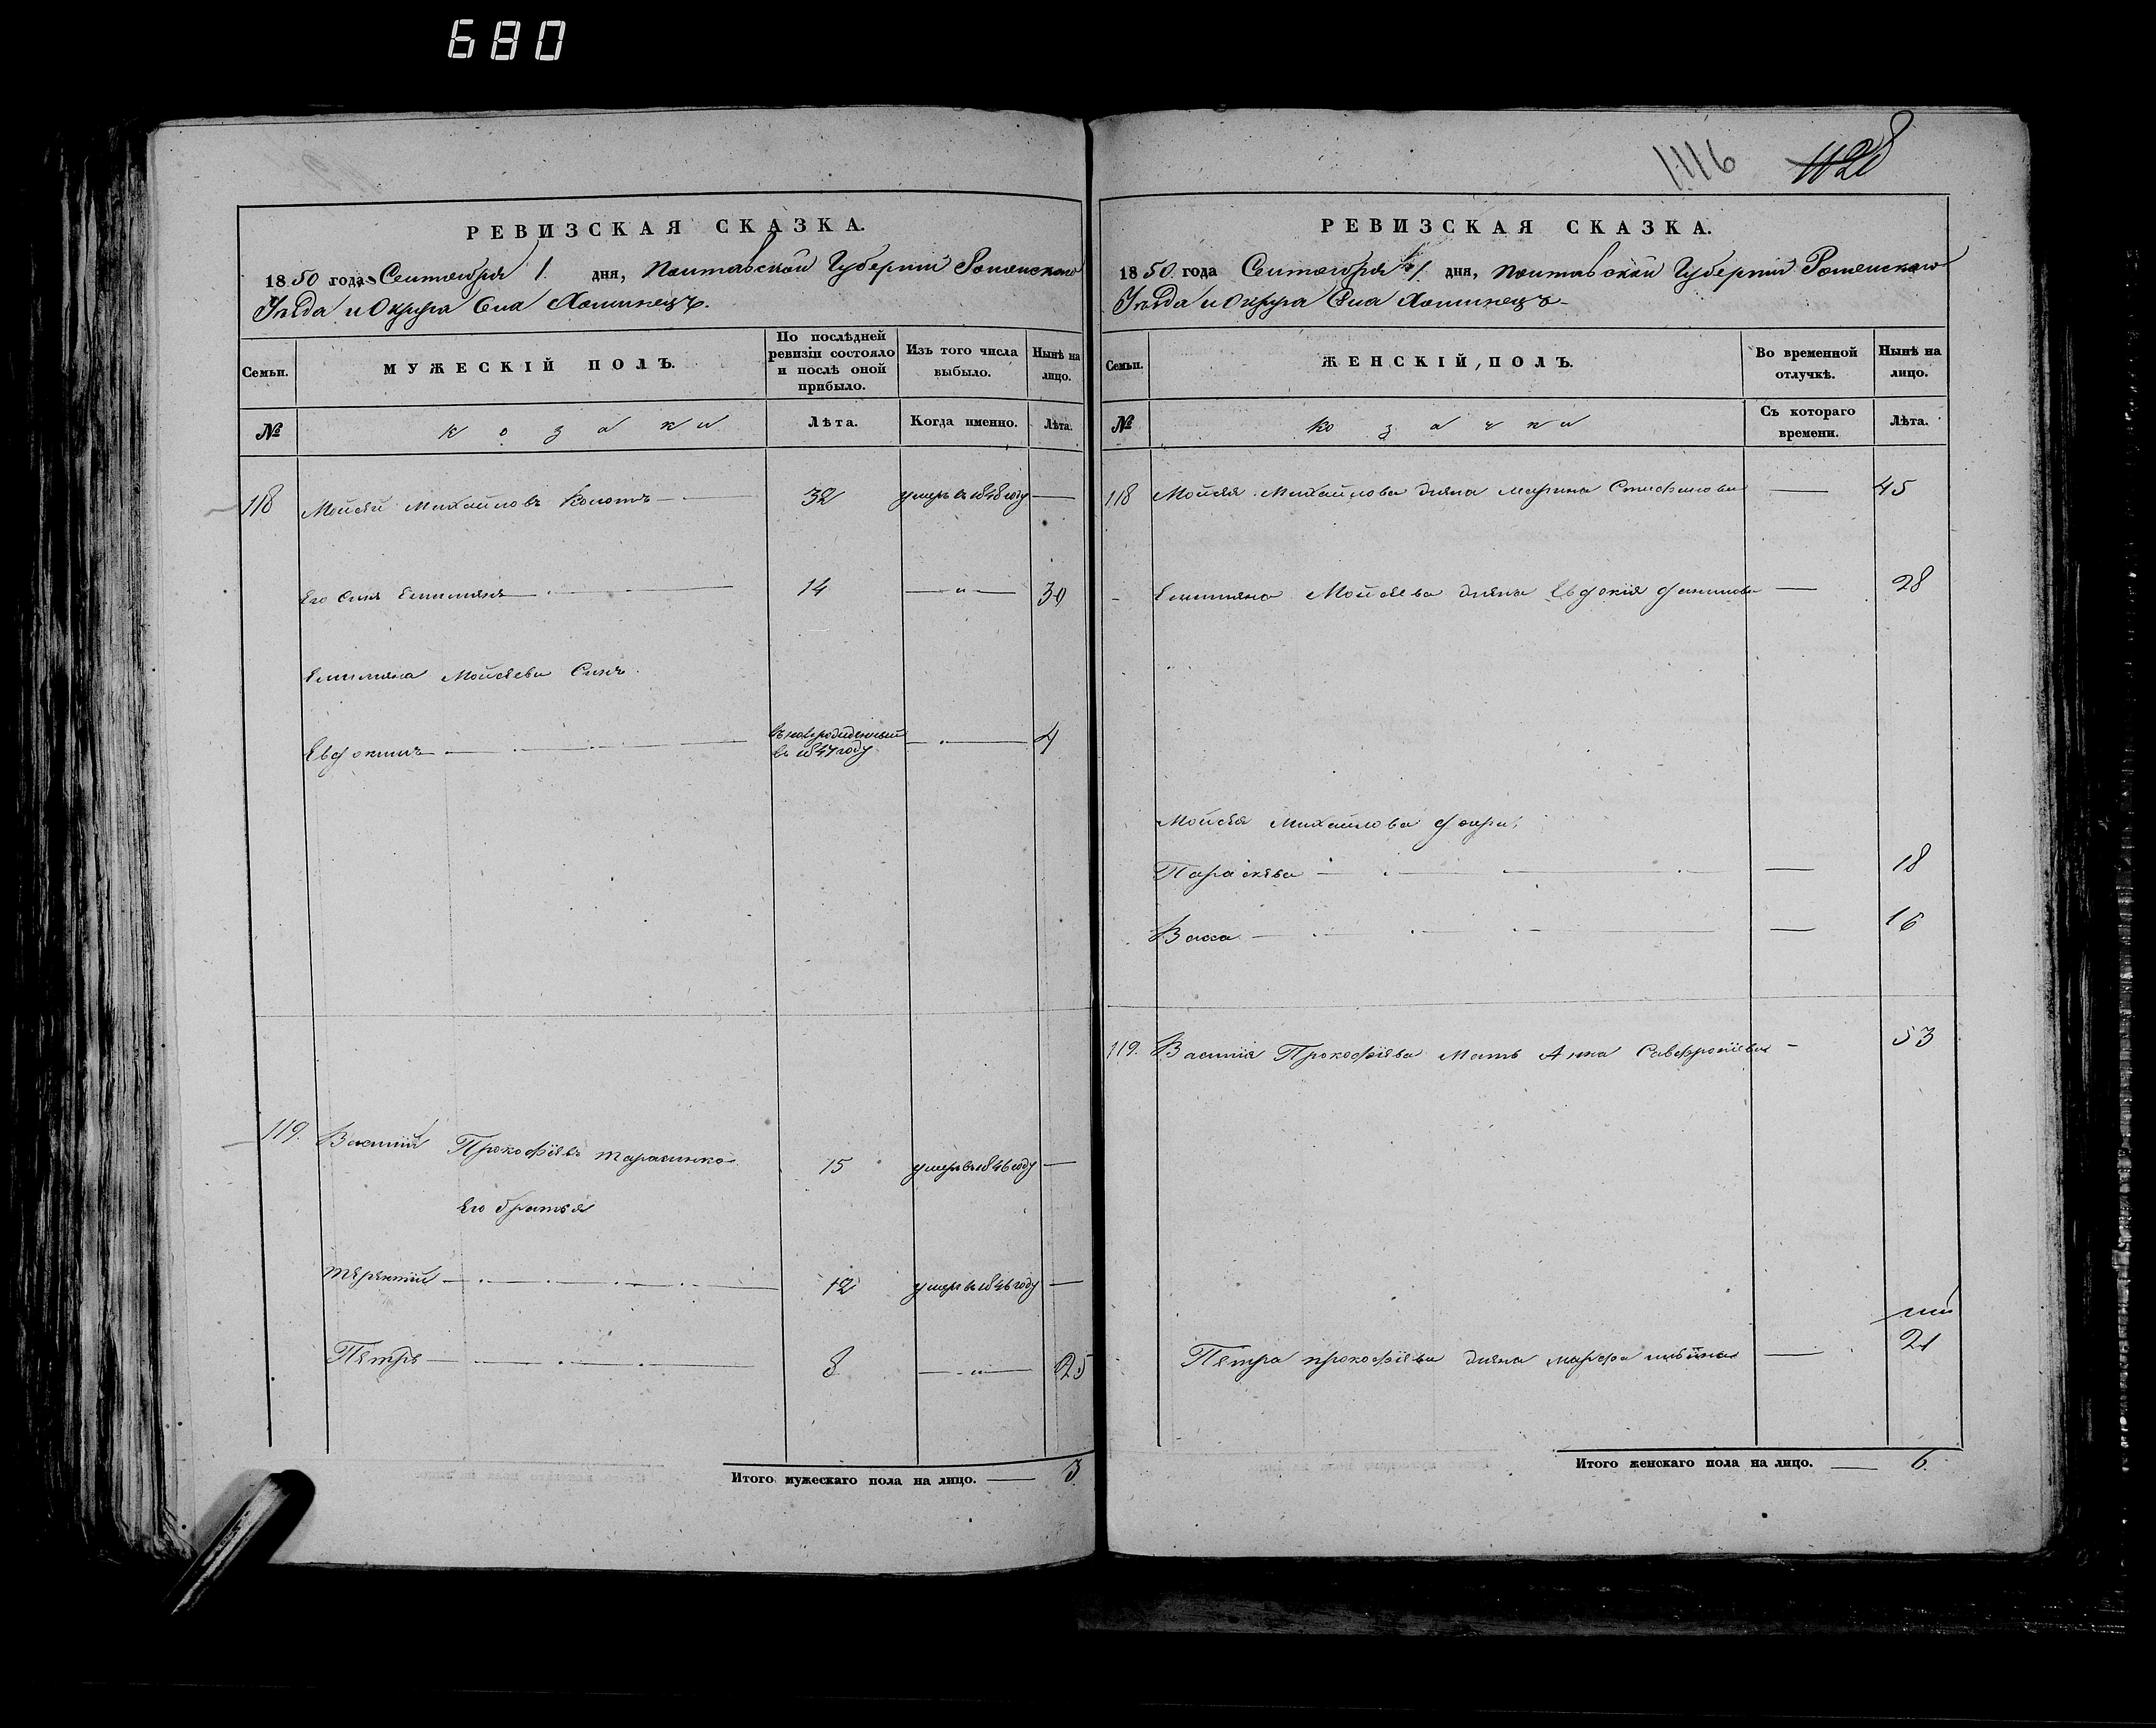 680
1116 1128
РЕВИЗСКАЯ СКАЗКА.
1850 года Сентября 1. дня, Полтавской Губерніи Роменскаго
Уѣзда и Округа Села Хоминецъ.
Семьи.
МУЖЕСКІЙ ПОЛЪ.
По послѣдней ревизіи состояло и послѣ оной прибыло.
Изъ того числа выбыло.
Нынѣ на лицо.
№
козаки
Лѣта.
Когда именно.
Лѣта.
118 Мойсей Михайловъ 32 умеръ въ 1848 году —
Его Сынъ Емилиянъ 14 — „ — 30
Емилияна Мойсеева Сынъ
Евдокимъ новорожденный въ 1847 году — 4
119. Василий Прокофіевъ Тарасенко 15 умеръ въ 1846 году —
Его братья
Терентий 12 умеръ въ 1846 году —
Петръ 8 — „ — 25
Итого мужескаго пола на лицо. — 3
РЕВИЗСКАЯ СКАЗКА.
1850 года Сентября 1 дня, Полтавской Губерніи Роменскаго
Уѣзда и Округа Села Хоминецъ
Семьи.
ЖЕНСКІЙ, ПОЛЪ.
Во временной отлучкѣ.
Нынѣ на лицо.
№
козачки
Съ котораго времени.
Лѣта.
118 Мойсея Михайлова жена Марина Стефанова — 45
Емилияна Мойсеева жена Евдокія — 28
Мойсея Михайлова дочери:
Параскева — 18
Васса — 16
119. Василія Прокофіева Мать Анна — 53
Петра Прокофіева жена Марфа — 21
Итого женскаго пола на лицо. — 6.